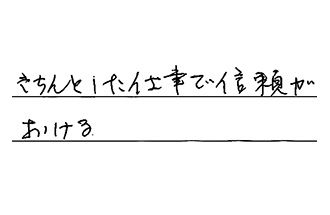 きちんとした仕事で信頼が
おける